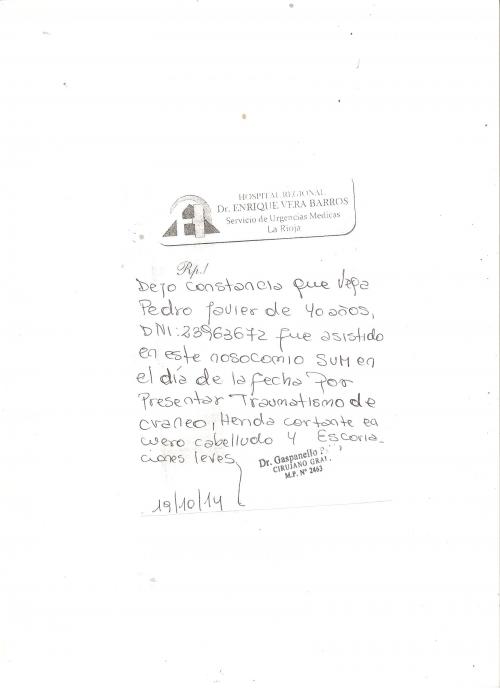 HOSPITAL REGIONAL
Dr. ENRIQUE VERA BARROS
Servicio de Urgencias Medicas
La Rioja
Rp./
Dejo constancia que Vega
Pedro Javier de 40 años,
DNI: 23963672 fue asistido
en este nosocomio SUM en
el día de la fecha por
Presentar Traumatismo de
craneo, Herida cortante en
cuero cabelludo y Escoria_
ciones leves
Dr. Gaspanello
CIRUJANO GRAL.
M.P. Nº 2463
19/10/14